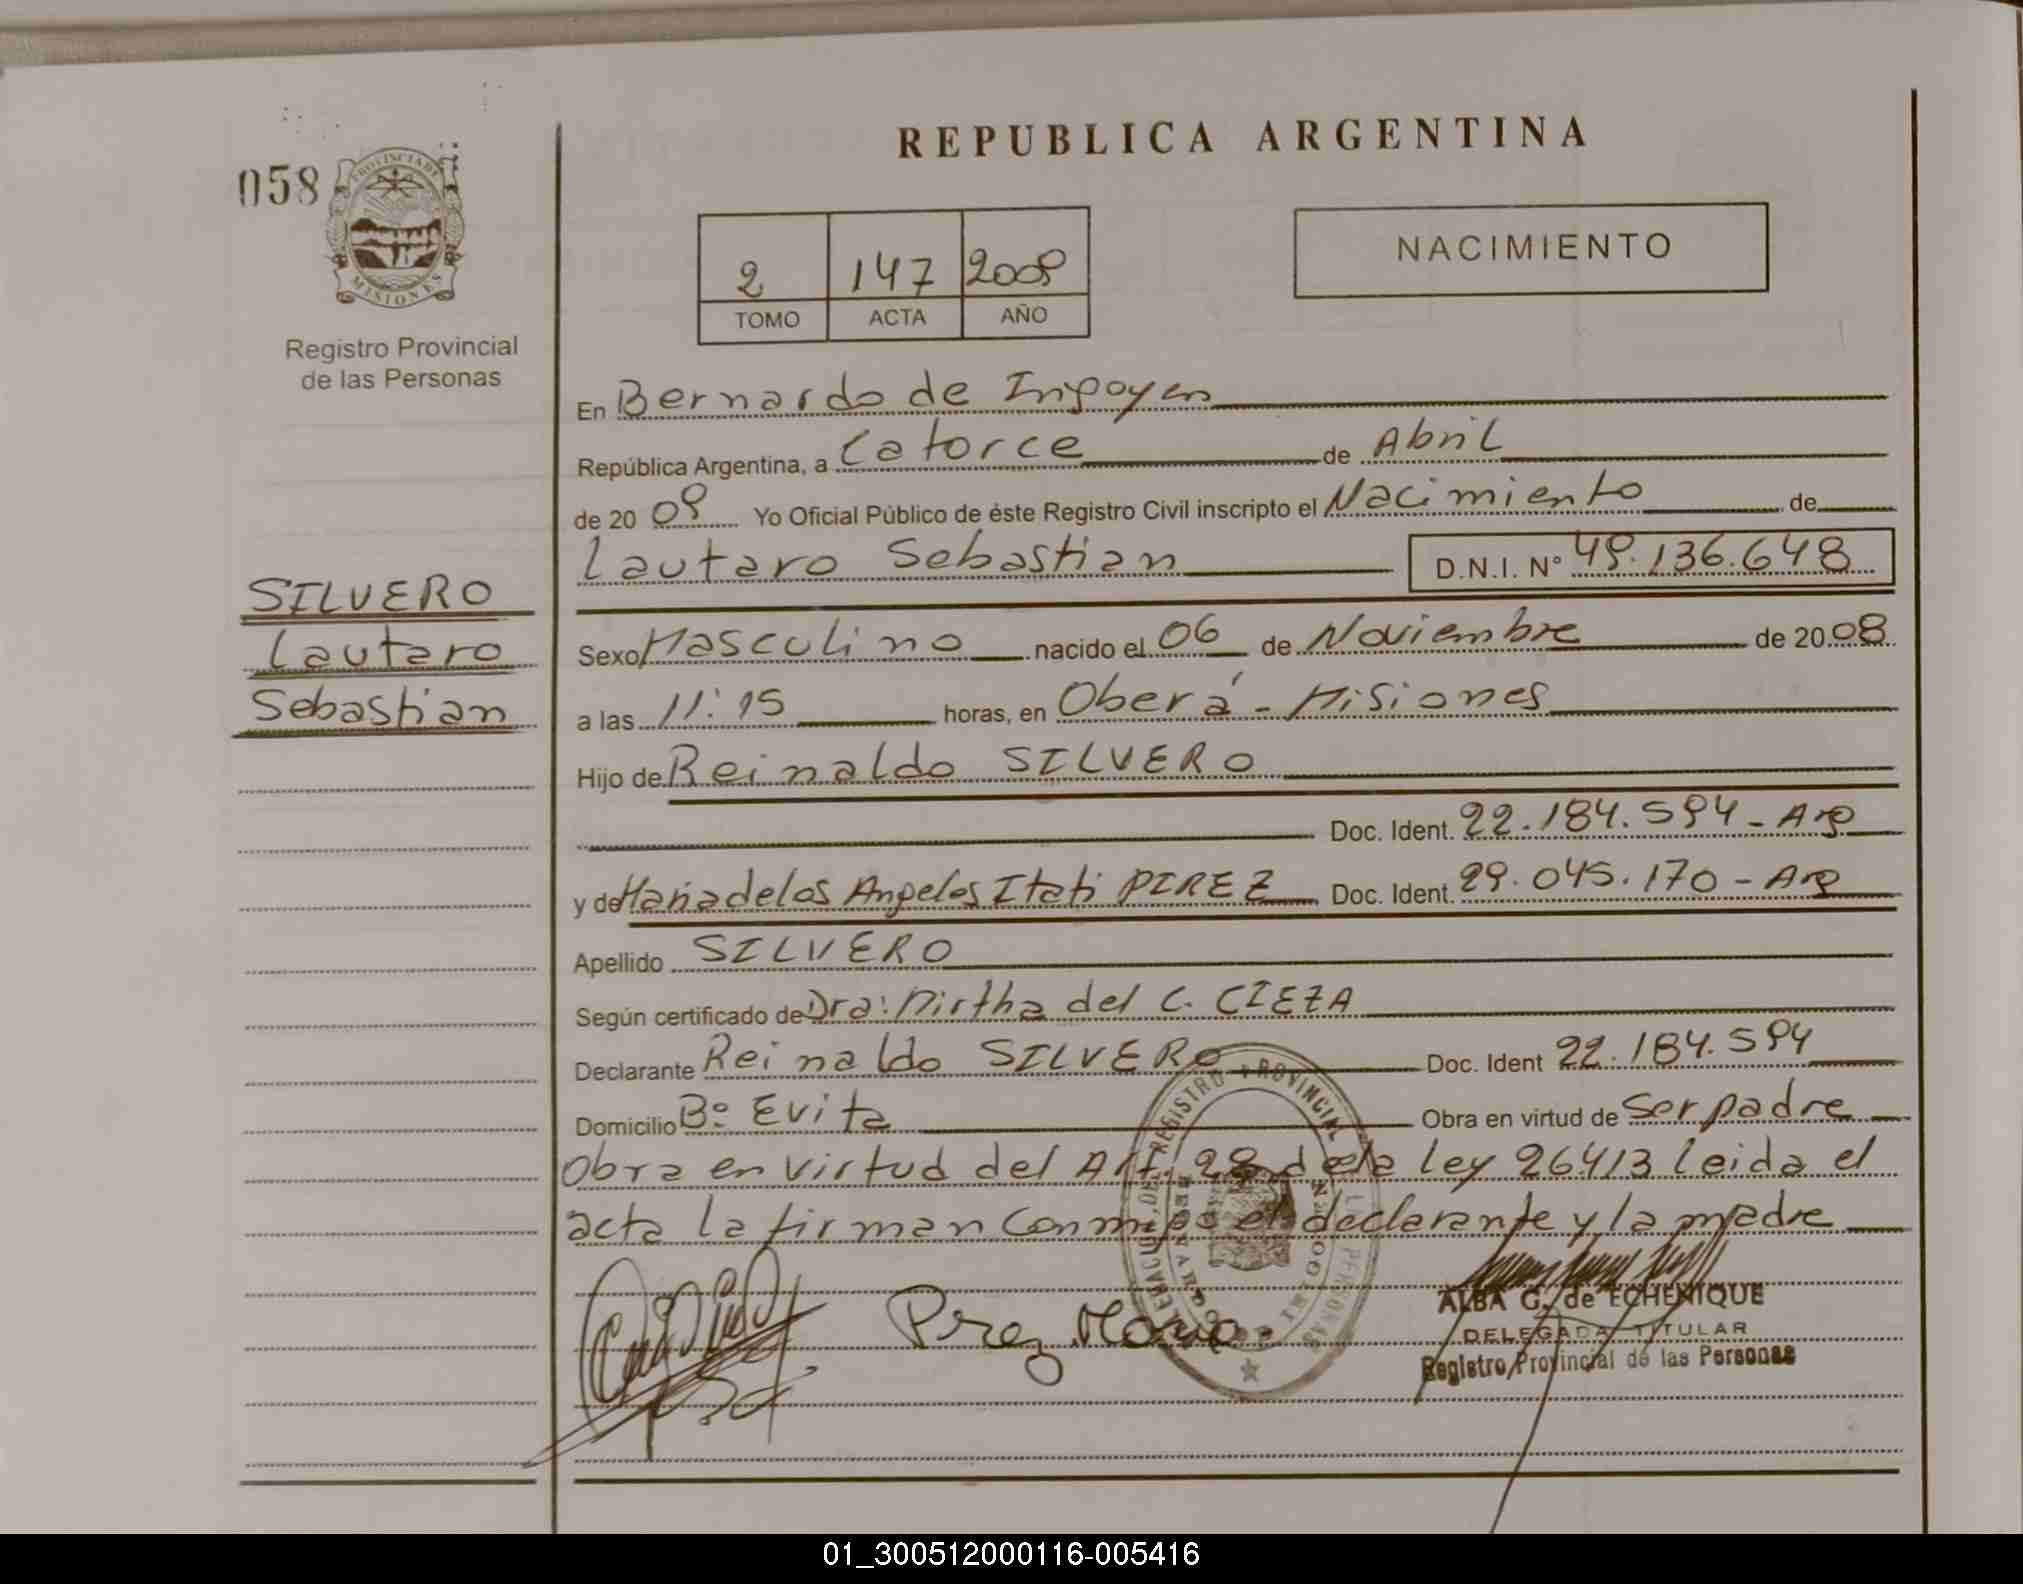 REPUBLICA ARGENTINA
058
PROVINCIA DE MISIONES
Registro Provincial
de las Personas
2 147 2009
TOMO ACTA AÑO
NACIMIENTO
En Bernardo de Irigoyen
República Argentina, a Catorce de Abril
de 20 09 Yo Oficial Público de éste Registro Civil inscripto el Nacimiento de
Lautaro Sebastian D.N.I. Nº 49.136.648
SILVERO
Lautaro
Sebastian
Sexo Masculino nacido el 06 de Noviembre de 20 08
a las 11:15 horas, en Oberá - Misiones
Hijo de Reinaldo SILVERO
Doc. Ident. 22.184.594 - Arg
y de María de los Angeles Itati PIREZ Doc. Ident. 29.045.170 - Arg
Apellido SILVERO
Según certificado de Dra: Mirtha del C. CIEZA
Declarante Reinaldo SILVERO Doc. Ident 22.184.594
Domicilio Bº Evita Obra en virtud de Ser padre
Obra en virtud del Art. 28 de la ley 26413 leida el
acta la firman conmigo el declarante y la madre
Pirez Maria
ALBA G. de ECHENIQUE
DELEGADA TITULAR
Registro Provincial de las Personas
01_300512000116-005416